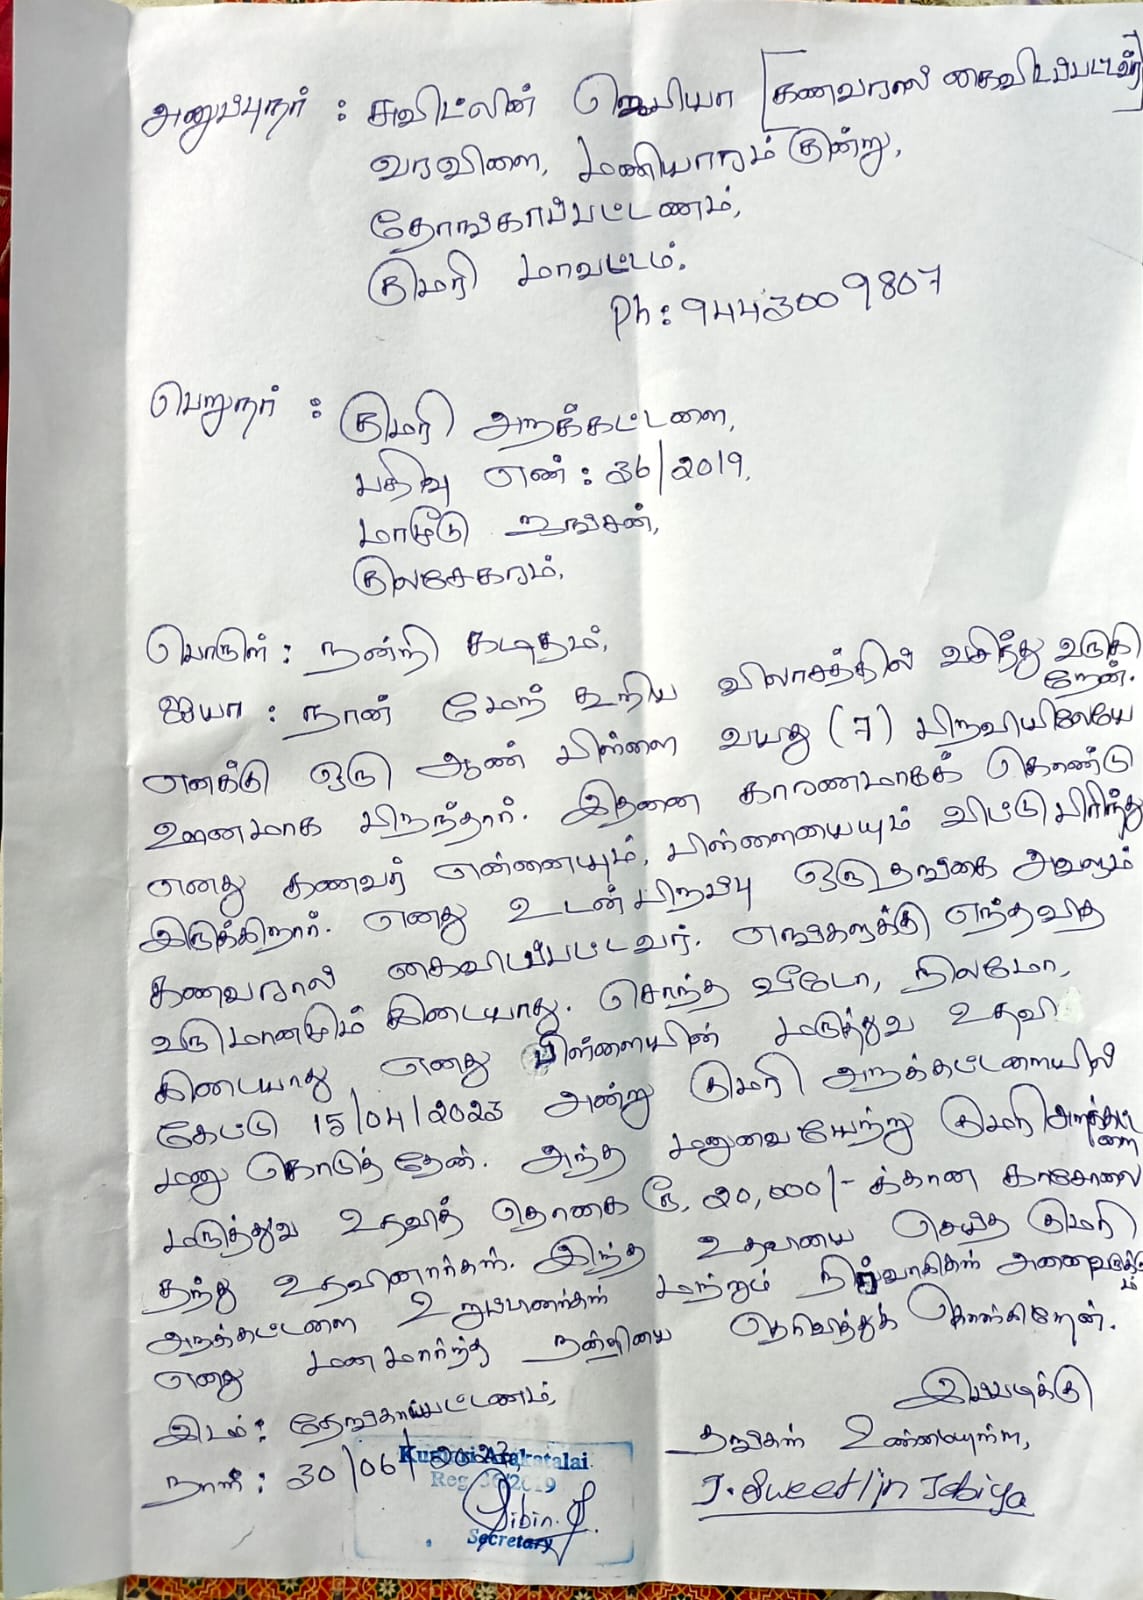 அனுப்புநர் : சுவிட்லின் ஜெபியா [கணவரால் கைவிடப்பட்டவர்]
வரவிளை, மணியாரம் குன்று,
தேங்காப்பட்டணம்,
குமரி மாவட்டம்.
Ph : 9443009807
பெறுநர் : குமரி அறக்கட்டளை,
பதிவு எண் : 36/2019,
மாமூடு ஜங்சன்,
குலசேகரம்.
பொருள் : நன்றி கடிதம்,
ஐயா : நான் மேற் கூறிய விலாசத்தில் வசித்து வருகி
றேன்.
எனக்கு ஒரு ஆண் பிள்ளை வயது (7) பிறவியிலேயே
ஊனமாக பிறந்தார். இதனை காரணமாகக் கொண்டு
எனது கணவர் என்னையும், பிள்ளையையும் விட்டு பிரிந்து
இருக்கிறார். எனது உடன் பிறப்பு ஒரு தங்கை அவளும்
கணவரால் கைவிடப்பட்டவர். எங்களுக்கு எந்தவித
வருமானமும் கிடையாது. சொந்த வீடோ, நிலமோ,
கிடையாது எனது பிள்ளையின் மருத்துவ உதவி
கேட்டு 15/04/2023 அன்று குமரி அறக்கட்டளையில்
மனு கொடுத்தேன். அந்த மனுவை யேற்று குமரி அறக்கட்ட
ளை
மருத்துவ உதவித் தொகை ரூ. 20,000/- க்கான காசோலை
தந்து உதவினார்கள். இந்த உதவியை செய்த குமரி
அறக்கட்டளை உறுப்பினர்கள் மற்றும் நிர்வாகிகள் அனைவருக்கு
ம்
எனது மனமார்ந்த நன்றியை தெரிவித்துக் கொள்கிறேன்.
இப்படிக்கு
இடம் : தேங்காப்பட்டணம்,
தங்கள் உண்மையுள்ள,
நாள் : 30/06/2023,
J. Sweetlin Jebiya
Kumari Arakatalai
Reg 36/2019
Sibin. 
Secretary